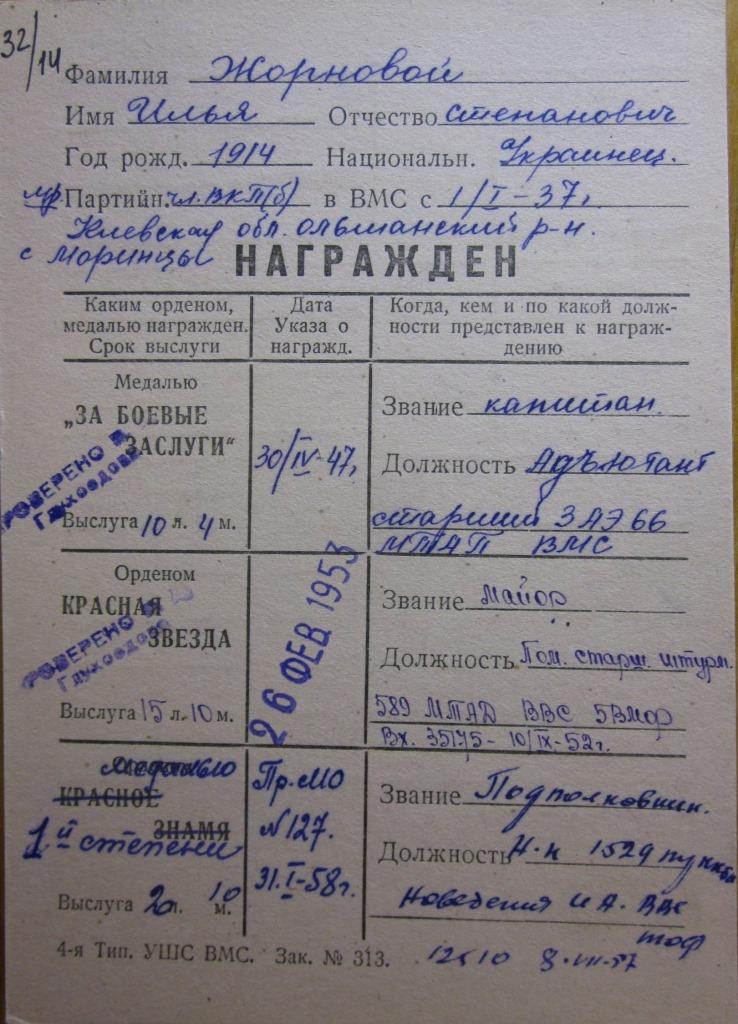 32/14
Фамилия Жорновой
Имя Илья Отчество Степанович
Год рожд. 1914 Национальн. Украинец.
Партийн. чл. ВКП(б) в ВМС с 1/I-37г.
Киевская обл. Ольшанский р-н.
с Моринцы
НАГРАЖДЕН
Каким орденом, медалью награжден. Срок выслуги
Дата Указа о награжд.
Когда, кем и по какой должности представлен к награждению
Медалью
„ЗА БОЕВЫЕ
ЗАСЛУГИ“
ПРОВЕРЕНО
Глуховдова
Выслуга 10 л. 4 м.
30/IV-47г.
Звание капитан.
Должность Адъютант
старший 3 АЭ 66
МТАП ВМС
Орденом
КРАСНАЯ
ЗВЕЗДА
ПРОВЕРЕНО
Глуховдова
Выслуга 15 л. 10 м.
26 ФЕВ 1953
Звание майор
Должность Пом. старш. штурм.
589 МТАД ВВС 5ВМФ
Вх. 35175- 10/IX-52г.
Медалью
КРАСНОЕ
ЗНАМЯ
1й степени
Выслуга 20 л. 10 м.
Пр. МО
№127.
31.I-58г.
Звание Подполковник.
Должность Н-к 1529 пункта
наведения ИА. ВВС
тоф
4-я Тип. УШС ВМС. Зак. № 313.
8-VII-57